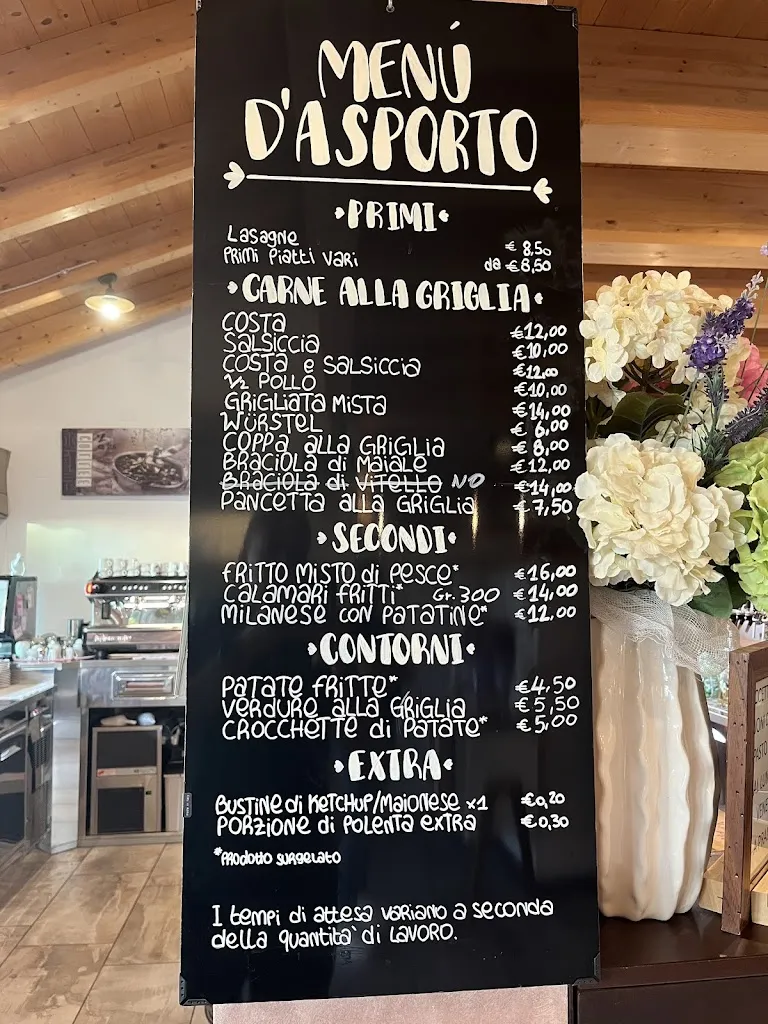 MENÚ
D'ASPORTO
PRIMI
Lasagne € 8,50
Primi Piatti vari da € 8,50
CARNE ALLA GRIGLIA
Costa € 12,00
Salsiccia € 10,00
Costa e Salsiccia € 12,00
½ Pollo € 10,00
Grigliata Mista € 14,00
Würstel € 6,00
Coppa alla Griglia € 8,00
Braciola di Maiale € 12,00
Braciola di Vitello NO € 14,00
Pancetta alla Griglia € 7,50
SECONDI
Fritto Misto di Pesce* € 16,00
Calamari Fritti* Gr. 300 € 14,00
Milanese con Patatine* € 12,00
CONTORNI
Patate Fritte* € 4,50
Verdure alla Griglia € 5,50
Crocchette di Patate* € 5,00
EXTRA
Bustine di Ketchup/Maionese x1 € 0,20
Porzione di Polenta extra € 0,30
*Prodotto surgelato
I tempi di attesa variano a seconda
della quantità di lavoro.